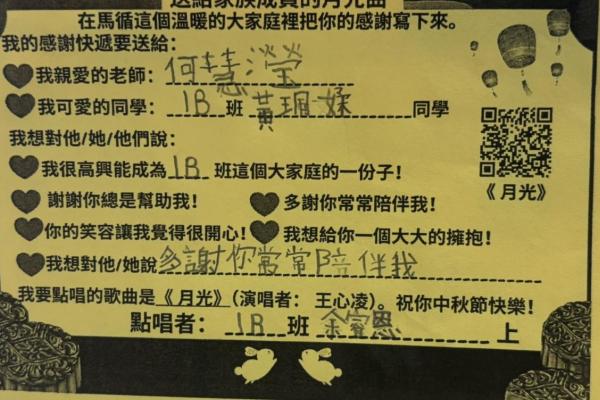 送給家族成員的月光曲
在馬循這個溫暖的大家庭裡把你的感謝寫下來。
我的感謝快遞要送給：
我親愛的老師：何慧瀅
我可愛的同學：1B班 黃珮媃 同學
我想對他/她/他們說：
我很高興能成為1B班這個大家庭的一份子！
謝謝你總是幫助我！ 多謝你常常陪伴我！
《月光》
你的笑容讓我覺得很開心！ 我想給你一個大大的擁抱！
我想對他/她說多謝你常常陪伴我
我要點唱的歌曲是《月光》（演唱者：王心凌）。祝你中秋節快樂！
點唱者：1B班 余睿恩 上